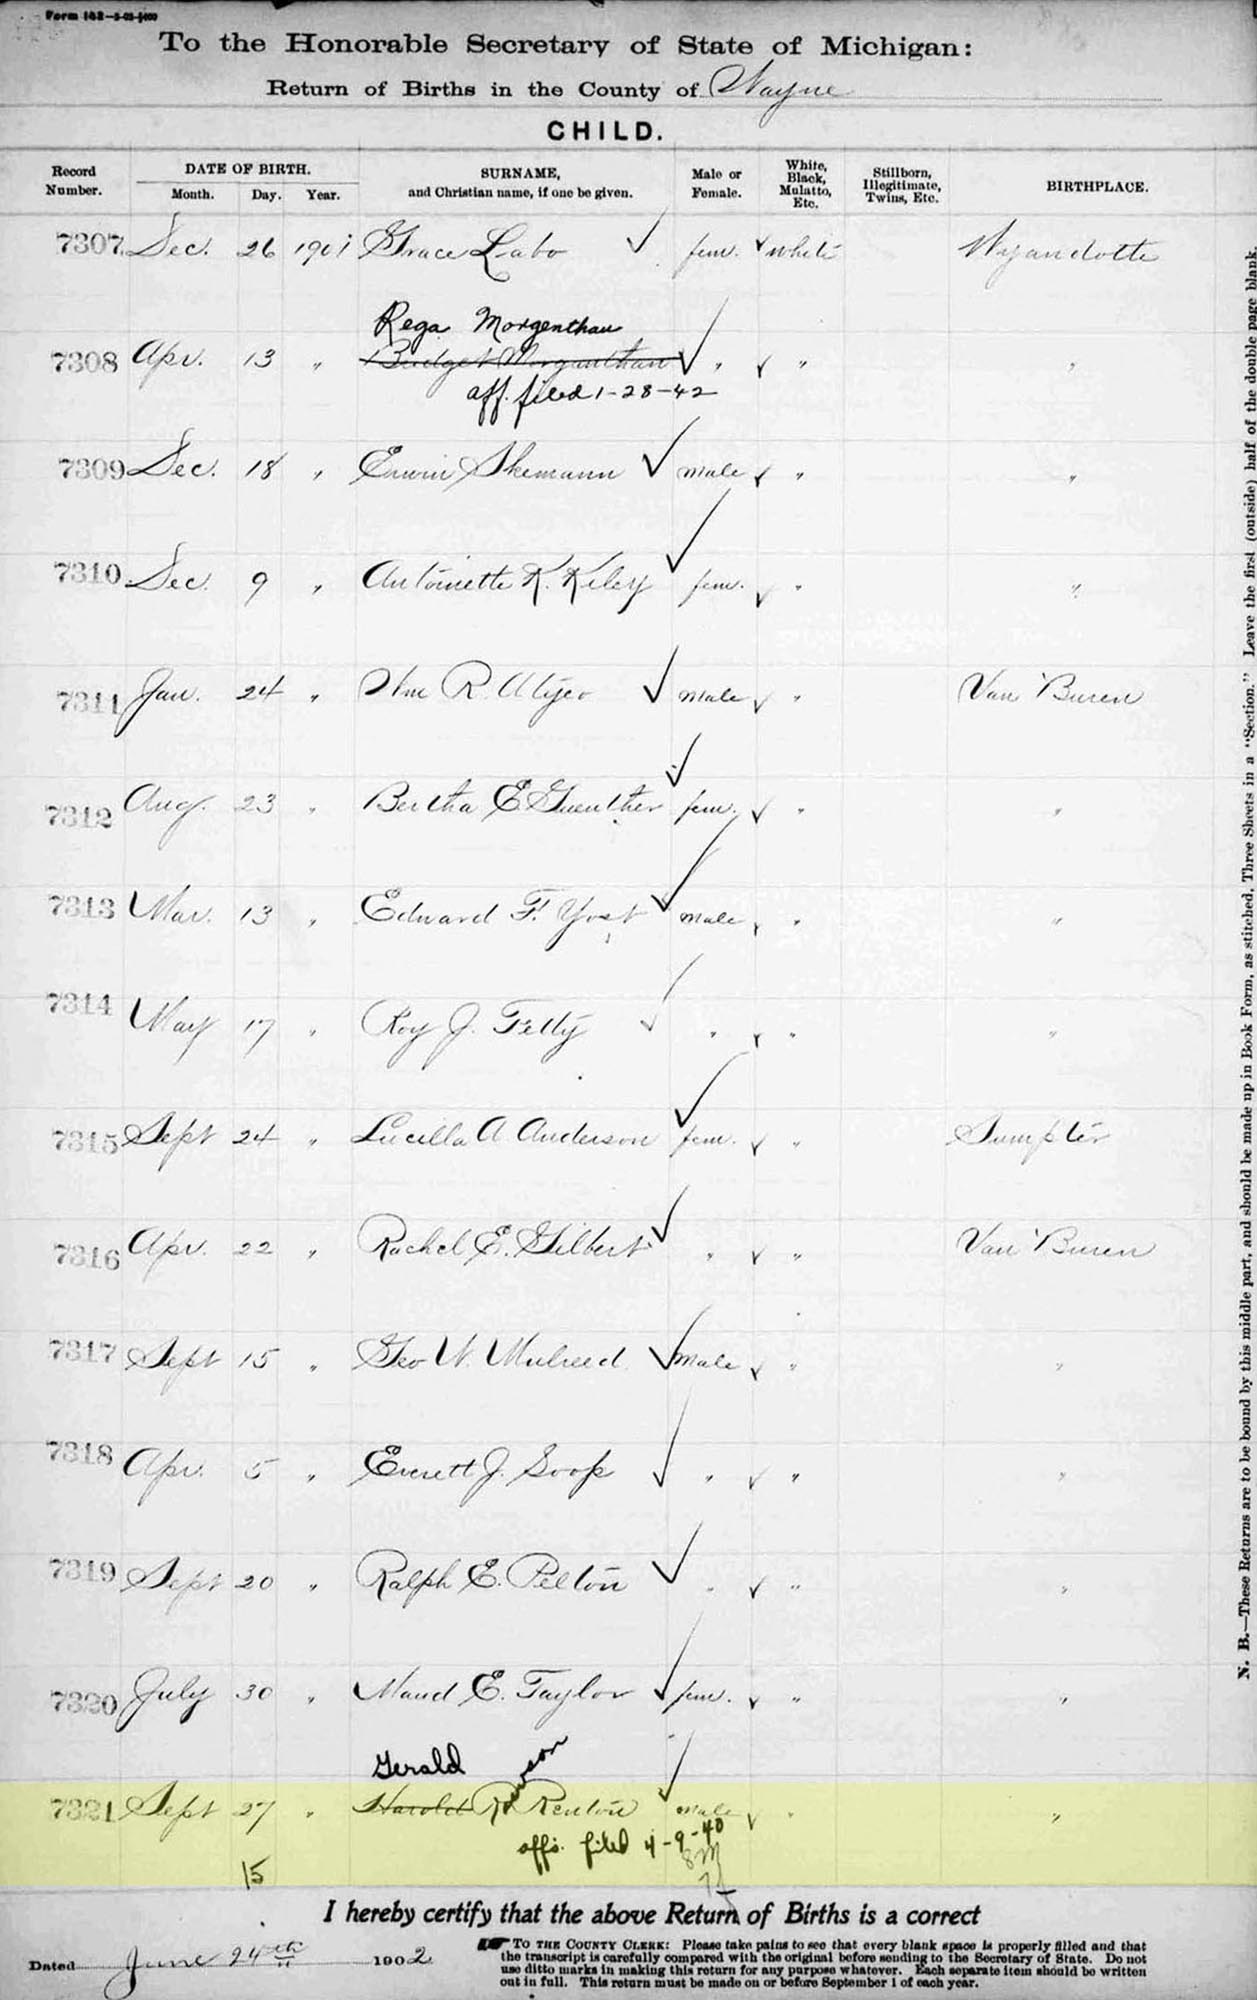 Form 148-5-03-1400
To the Honorable Secretary of State of Michigan:
Return of Births in the County of Wayne
CHILD.
Record Number. DATE OF BIRTH. Month. Day. Year. SURNAME, and Christian name, if one be given. Male or Female. White, Black, Mulatto, Etc. Stillborn, Illegitimate, Twins, Etc. BIRTHPLACE.
7307 Dec. 26 1901 Grace Labo ✓ fem. ✓ White Wyandotte
Rega Morgenthau
7308 Apr. 13 " Morganthau ✓ " ✓ " "
aff. filed 1-28-42
7309 Dec. 18 " Erwin Skemann ✓ male ✓ " "
7310 Dec. 9 " Antoinette K. Kiley ✓ fem. ✓ " "
7311 Jan. 24 " Wm R. ✓ male ✓ " Van Buren
7312 Aug. 23 " Bertha E Guenther ✓ fem. ✓ " "
7313 Mar. 13 " Edward F. Yost ✓ male ✓ " "
7314 May 17 " Roy J. Felty ✓ " ✓ " "
7315 Sept 24 " Lucilla A. Anderson ✓ fem. ✓ " Sumpter
7316 Apr. 22 " Rachel E. Gilbert ✓ " ✓ " Van Buren
7317 Sept 15 " Geo W. ✓ male ✓ " "
7318 Apr. 5 " Everett J. Soop ✓ " ✓ " "
7319 Sept 20 " Ralph E. Pelton ✓ " ✓ " "
7320 July 30 " Maud E. Taylor ✓ fem. ✓ " "
Gerald
7321 Sept 27 " Harold Rawson Renton ✓ male ✓ " "
affs. filed 4-9-40
8M
15 7f
I hereby certify that the above Return of Births is a correct
Dated June 24th 1902
TO THE COUNTY CLERK: Please take pains to see that every blank space is properly filled and that
the transcript is carefully compared with the original before sending to the Secretary of State. Do not
use ditto marks in making this return for any purpose whatever. Each separate item should be written
out in full. This return must be made on or before September 1 of each year.
N. B.—These Returns are to be bound by this middle part, and should be made up in Book Form, as stitched, Three Sheets in a "Section." Leave the first (outside) half of the double page blank.